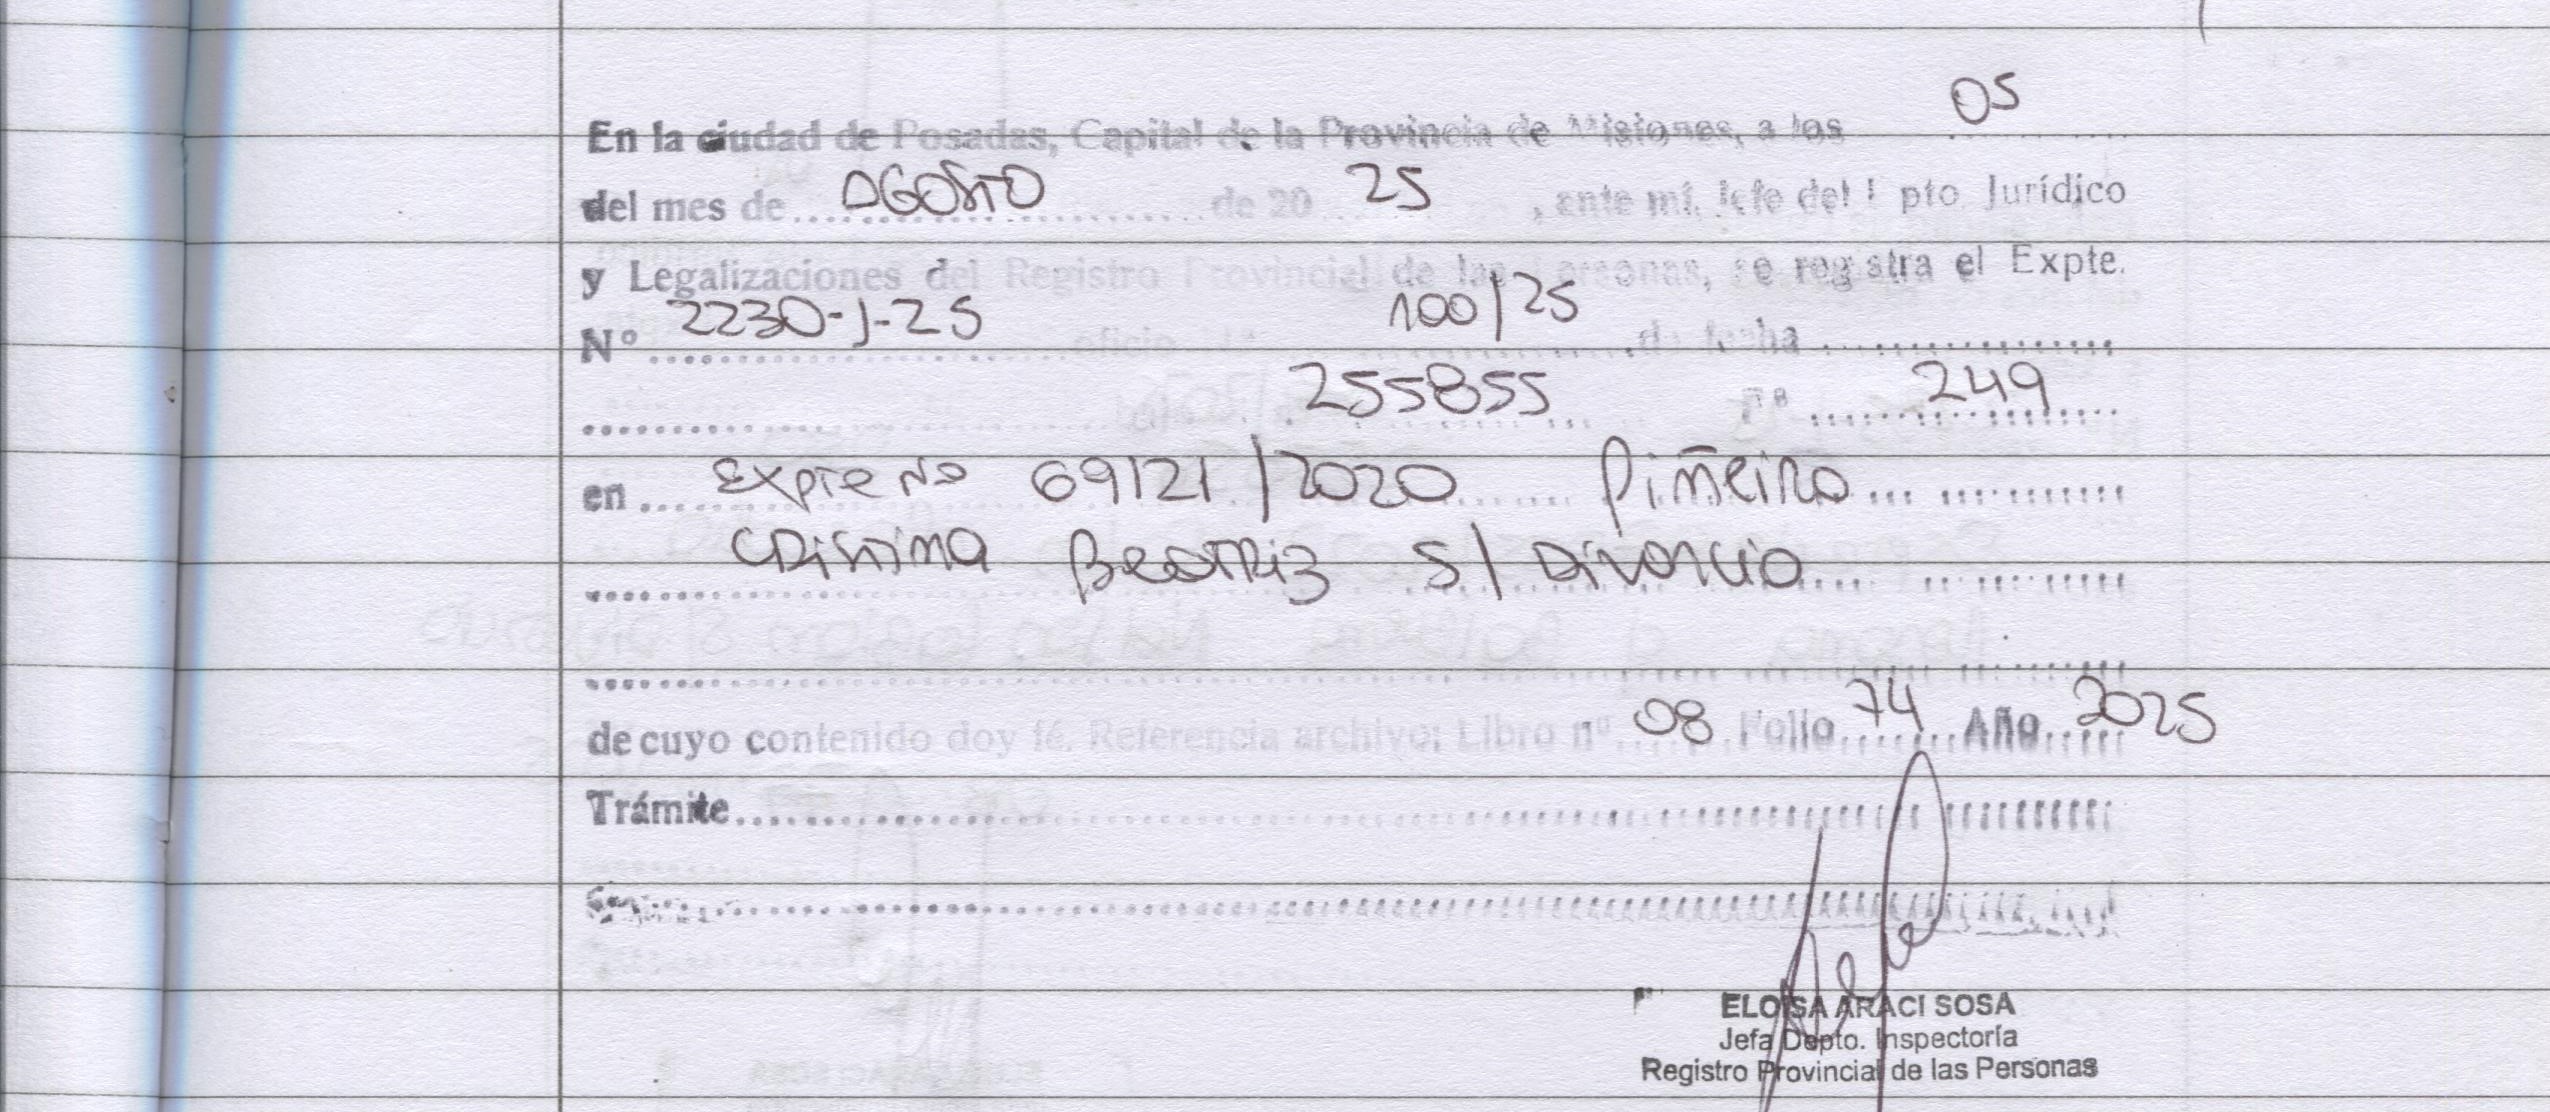 05
En la ciudad de Posadas, Capital de la Provincia de Misiones, a los
del mes de AGOSTO de 20 25, ante mí, Jefe del pto Jurídico
y Legalizaciones del Registro Provincial de las Personas, se registra el Expte.
Nº 2230-J-25 oficio 100/25 de fecha
255855 Fº 249
en Expte Nº 69121/2020 Piñeiro
Cristina Beatriz S/ Divorcio
de cuyo contenido doy fé. Referencia archivo: Libro nº 08 Folio 74 Año 2025
Trámite
ELOISA ARACI SOSA
Jefa Depto. Inspectoría
Registro Provincial de las Personas